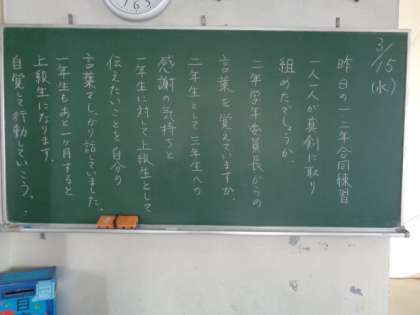 3/15(水)
昨日の一二年合同練習
一人一人が真剣に取り
組めたでしょうか。
二年学年委員長からの
言葉を覚えていますか。
二年生として三年生への
感謝の気持ちと
一年生に対して上級生として
伝えたいことを自分の
言葉でしっかり話していました。
一年生もあと一ヶ月すると
上級生になります。
自覚して行動していこう。